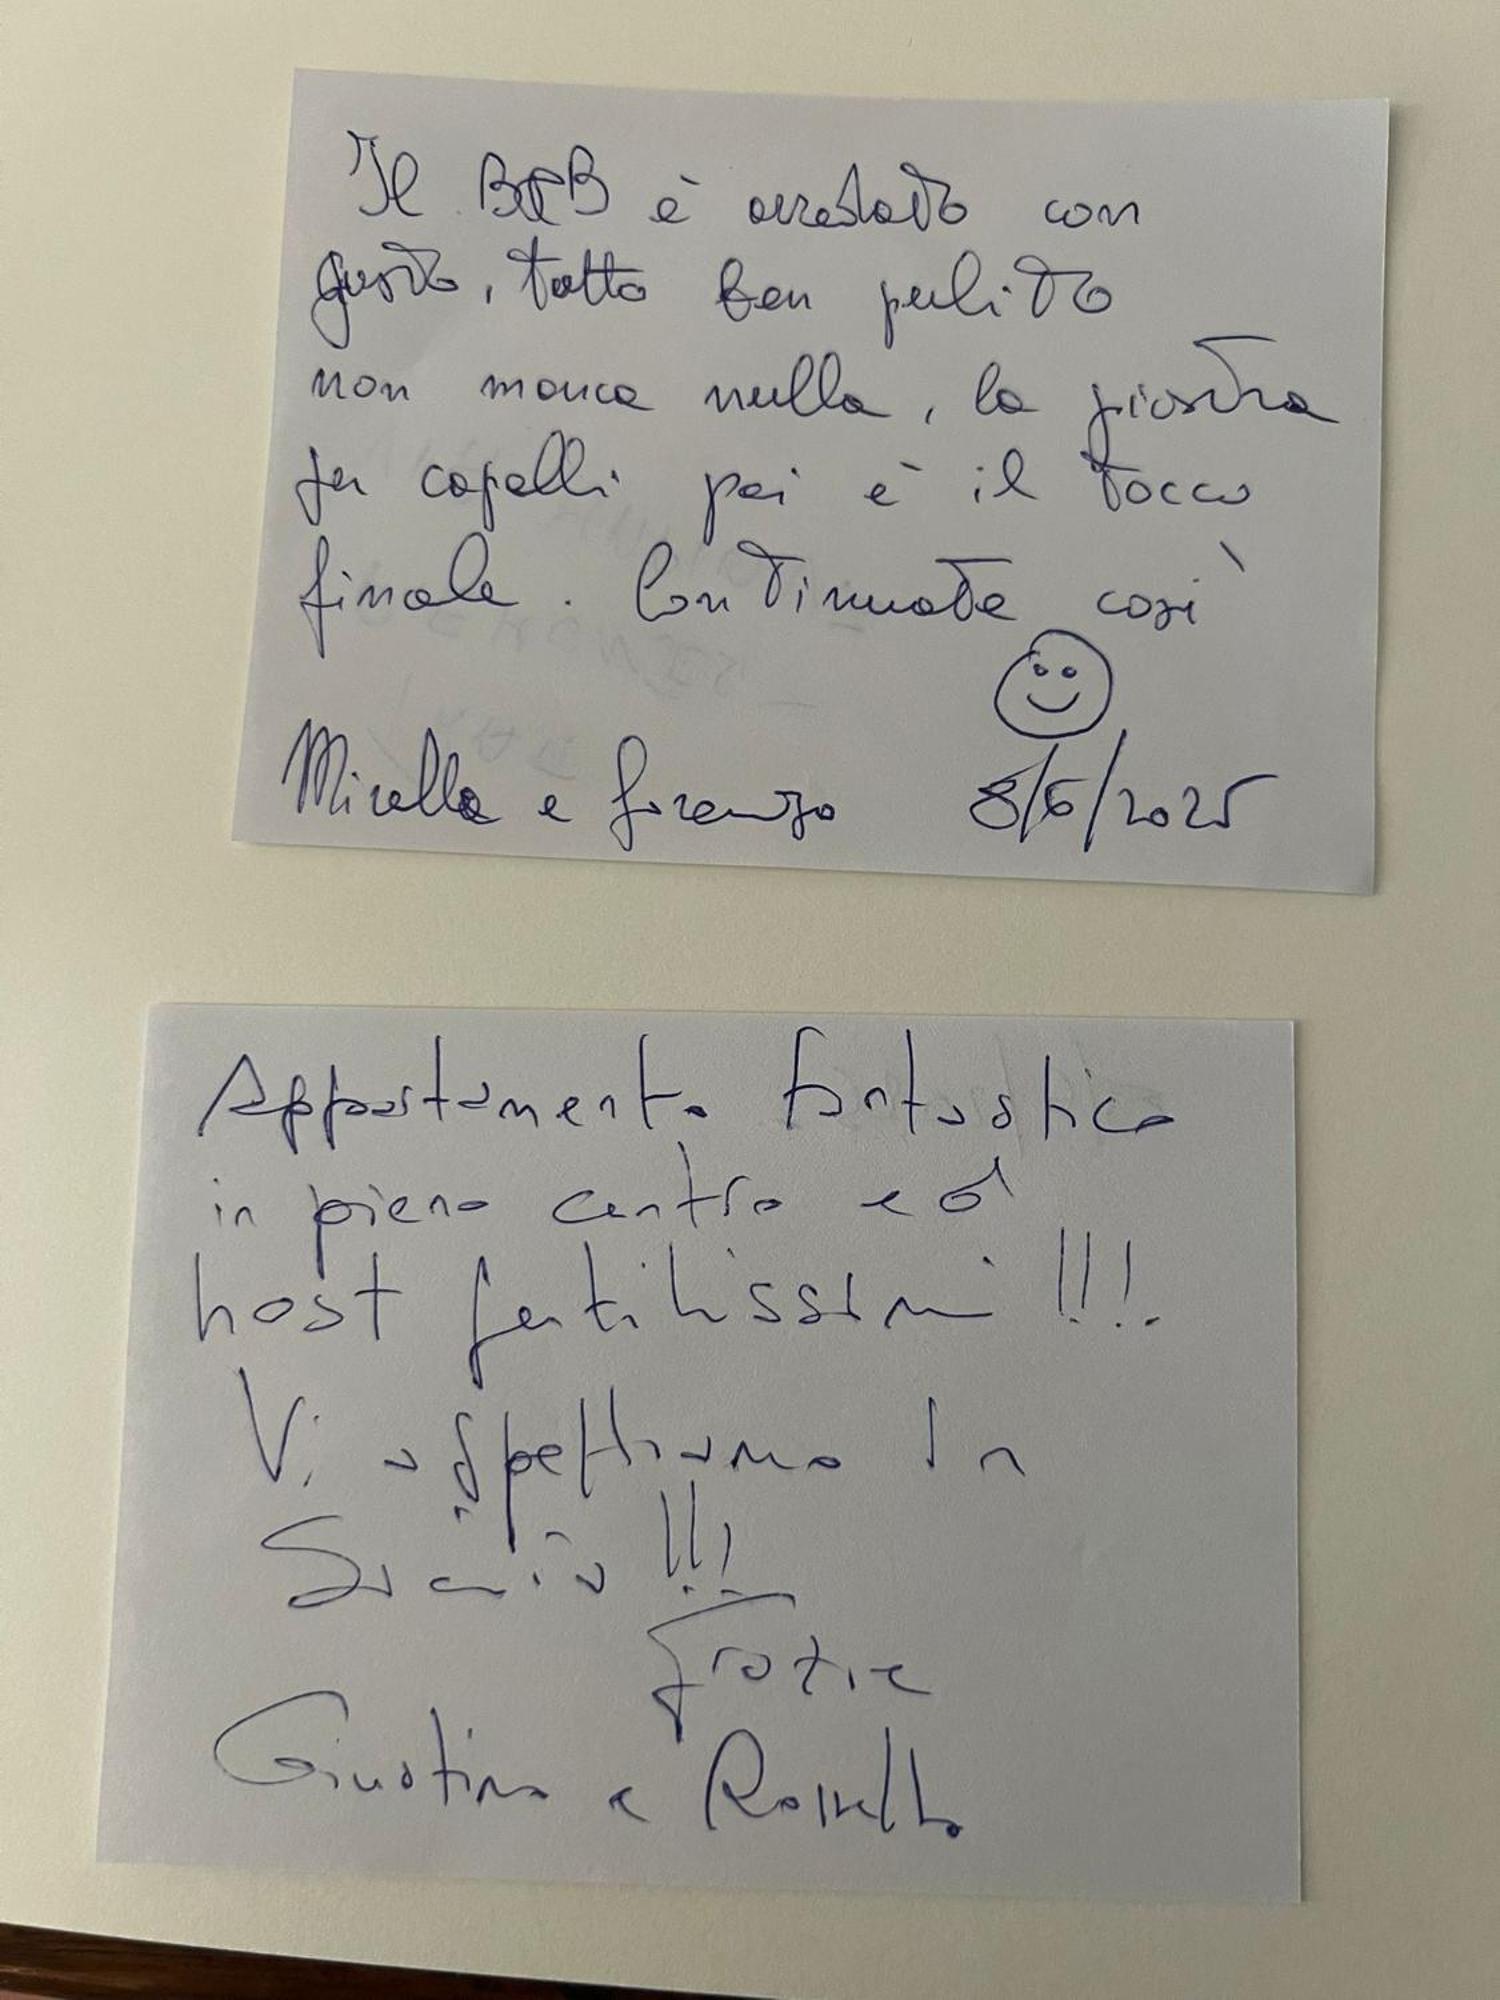 Il B&B è arredato con
gusto, tutto ben pulito
non manca nulla, la piastra
per capelli poi è il tocco
finale. Continuate così
Mirella e Lorenzo 8/6/2025
Appartamento fantastico
in pieno centro ed
host gentilissimi!!!
Vi aspettiamo in
!!!
Grazie
Giustina e Rossella